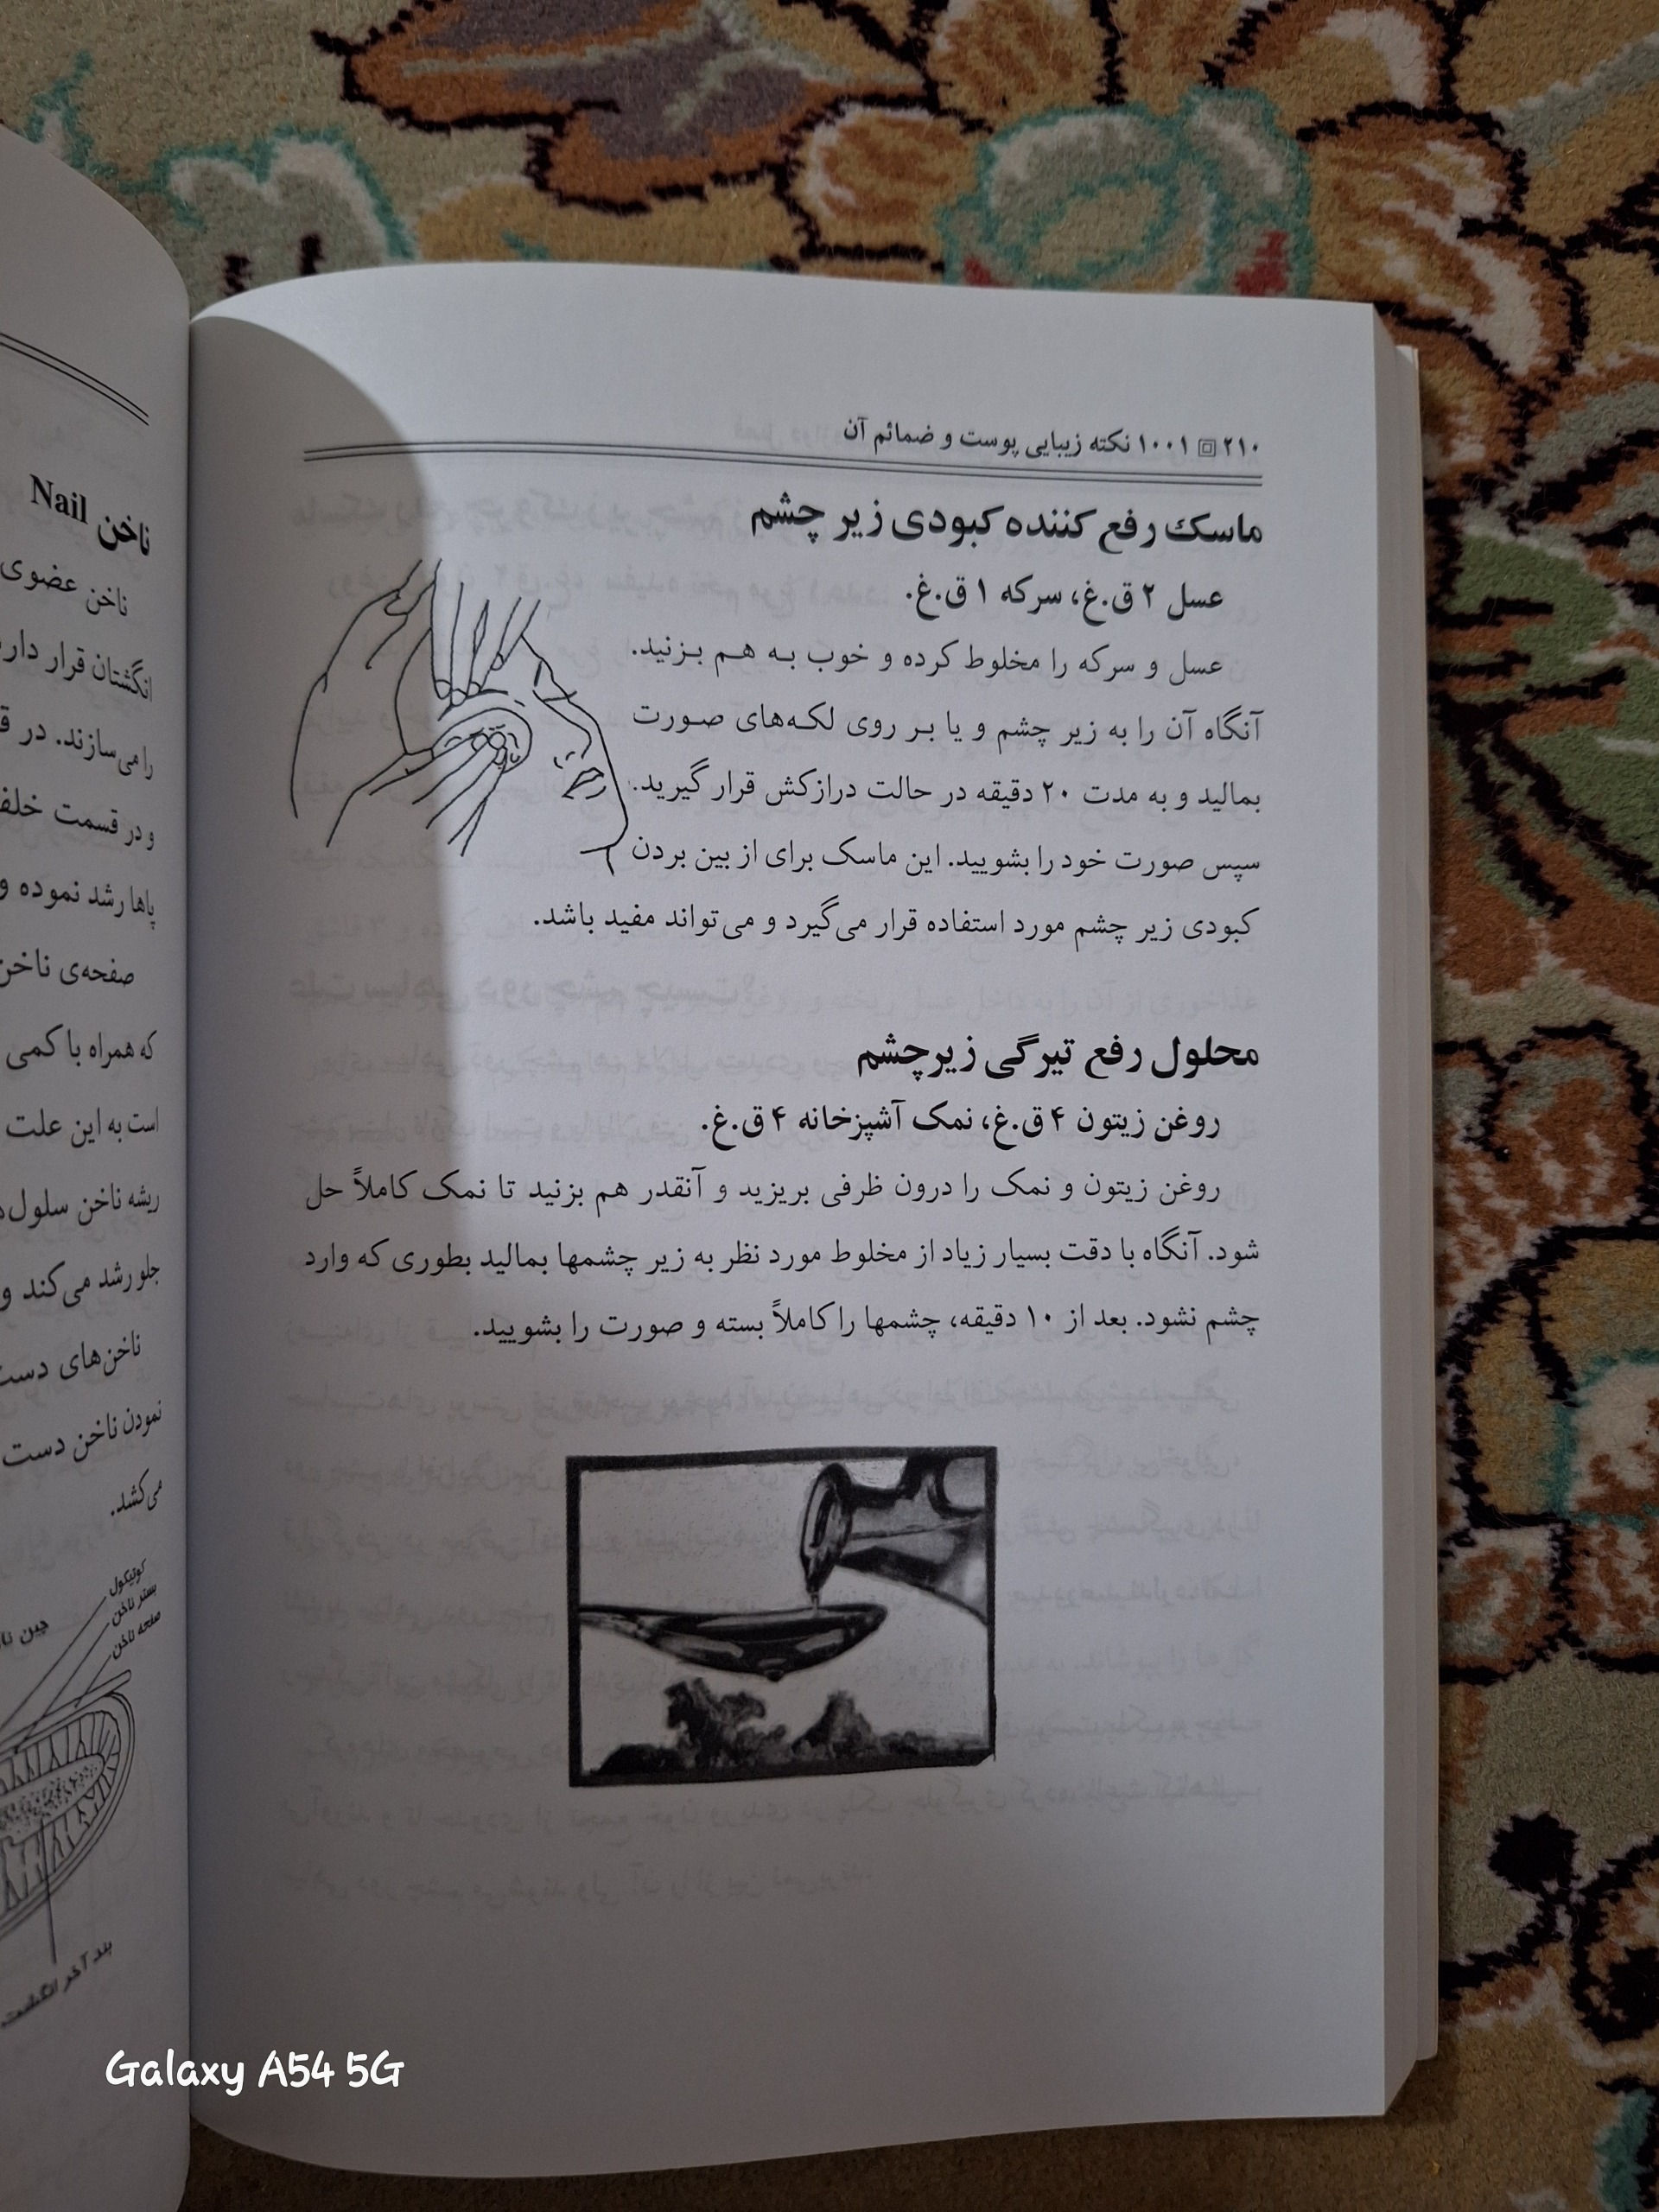 ۲۱۰ ۱۰۰۱ نکته زیبایی پوست و ضمائم آن
ماسک رفع کننده کبودی زیر چشم
عسل ۲ ق.غ، سرکه ۱ ق.غ.
عسل و سرکه را مخلوط کرده و خوب به هم بزنید.
آنگاه آن را به زیر چشم و یا بر روی لکه‌های صورت
بمالید و به مدت ۲۰ دقیقه در حالت درازکش قرار گیرید.
سپس صورت خود را بشویید. این ماسک برای از بین بردن
کبودی زیر چشم مورد استفاده قرار می‌گیرد و می‌تواند مفید باشد.
محلول رفع تیرگی زیرچشم
روغن زیتون ۴ ق.غ، نمک آشپزخانه ۴ ق.غ.
روغن زیتون و نمک را درون ظرفی بریزید و آنقدر هم بزنید تا نمک کاملاً حل
شود. آنگاه با دقت بسیار زیاد از مخلوط مورد نظر به زیر چشمها بمالید بطوری که وارد
چشم نشود. بعد از ۱۰ دقیقه، چشمها را کاملاً بسته و صورت را بشویید.
ناخن Nail
ناخن عضوی
انگشتان قرار
را می‌سازند. در
و در قسمت
پاها رشد نموده و
صفحه‌ی ناخن
که همراه با کمی
است به این علت
ریشه ناخن
جلو رشد می‌کند و
ناخن‌های
نمودن ناخن دست
می‌کشد.
کوتیکول
بستر ناخن
صفحه ناخن
چین
بند آخر انگشت
Galaxy A54 5G